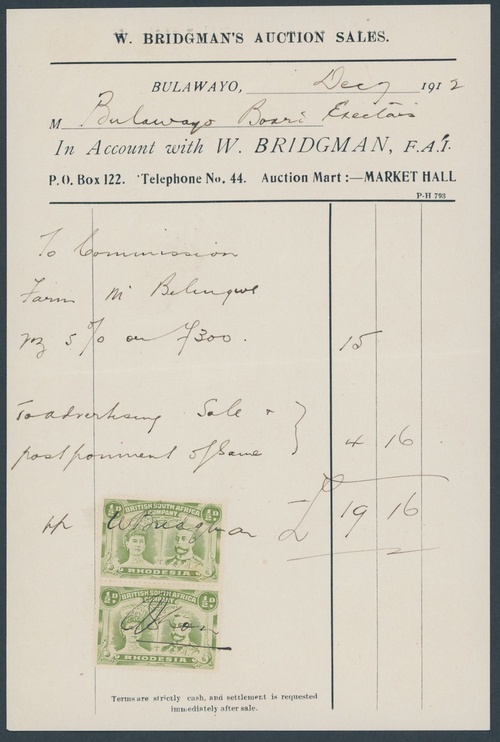 W. BRIDGMAN'S AUCTION SALES.
BULAWAYO, Dec 7 1912
M Bulawayo Board Exectors
In Account with W. BRIDGMAN, F.A.I.
P.O. Box 122. Telephone No. 44. Auction Mart:—MARKET HALL
P-H 793
To Commission
Farm in Belingwe
5 % on £300. 15
To advertising Sale &
postponment of Same 4 16
£ 19 16
pp W Bridgman
½D BRITISH SOUTH AFRICA COMPANY ½D
RHODESIA
½D BRITISH SOUTH AFRICA COMPANY ½D
RHODESIA
Terms are strictly cash, and settlement is requested
immediately after sale.